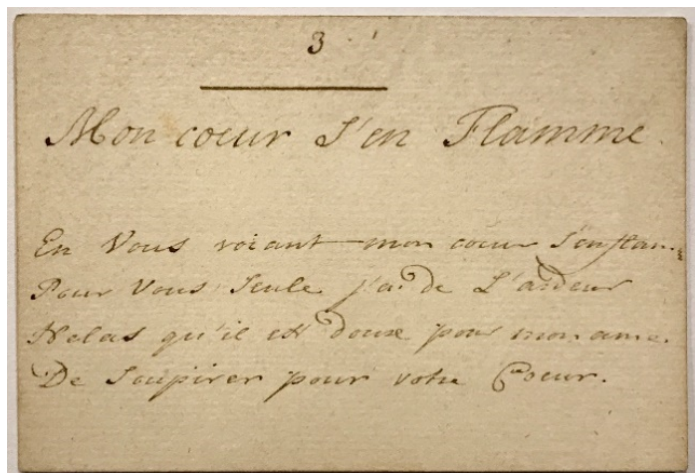 3
Mon coeur S'en Flamme
En Vous voiant mon coeur S'enflam
Pour Vous Seule j'ai de L'ardeur
Helas qu'il est doux pour mon ame.
De Soupirer pour votre Coeur.